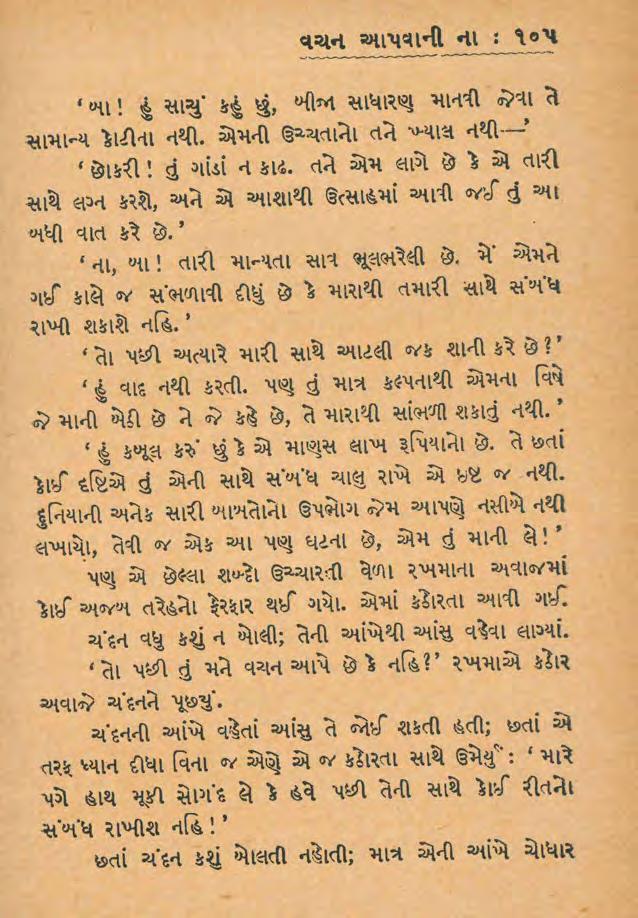 વચન આપવાની ના : ૧૦૫
‘બા! હું સાચું કહું છું, બીજા સાધારણ માનવી જેવા તે
સામાન્ય કોટીના નથી. એમની ઉચ્ચતાનો તને ખ્યાલ નથી—’
‘છોકરી! તું ગાંડાં ન કાઢ. તને એમ લાગે છે કે એ તારી
સાથે લગ્ન કરશે, અને એ આશાથી ઉત્સાહમાં આવી જઈ તું આ
બધી વાત કરે છે.’
‘ના, બા! તારી માન્યતા સાવ ભૂલભરેલી છે. મેં એમને
ગઈ કાલે જ સંભળાવી દીધું છે કે મારાથી તમારી સાથે સંબંધ
રાખી શકાશે નહિ.’
‘તો પછી અત્યારે મારી સાથે આટલી જક શાની કરે છે?’
‘હું વાદ નથી કરતી. પણ તું માત્ર કલ્પનાથી એમના વિષે
જે માની બેઠી છે ને જે કહે છે, તે મારાથી સાંભળી શકાતું નથી.’
‘હું કબૂલ કરું છું કે એ માણસ લાખ રૂપિયાનો છે. તે છતાં
કોઈ દૃષ્ટિએ તું એની સાથે સંબંધ ચાલુ રાખે એ ઇષ્ટ જ નથી.
દુનિયાની અનેક સારી બાબતોનો ઉપભોગ જેમ આપણે નસીબે નથી
લખાયો, તેવી જ એક આ પણ ઘટના છે, એમ તું માની લે!’
પણ એ છેલ્લા શબ્દો ઉચ્ચારતી વેળા રખમાના અવાજમાં
કોઈ અજબ તરેહનો ફેરફાર થઈ ગયો. એમાં કઠોરતા આવી ગઈ.
ચંદન વધુ કશું ન બોલી; તેની આંખેથી આંસુ વહેવા લાગ્યાં.
‘તો પછી તું મને વચન આપે છે કે નહિ?’ રખમાએ કઠોર
અવાજે ચંદનને પૂછ્યું.
ચંદનની આંખે વહેતાં આંસુ તે જોઈ શકતી હતી; છતાં એ
તરફ ધ્યાન દીધા વિના જ એણે એ જ કઠોરતા સાથે ઉમેર્યું: ‘મારે
પગે હાથ મૂકી સોગંદ લે કે હવે પછી તેની સાથે કોઈ રીતનો
સંબંધ રાખીશ નહિ!’
છતાં ચંદન કશું બોલતી નહોતી; માત્ર એની આંખે ચોધાર